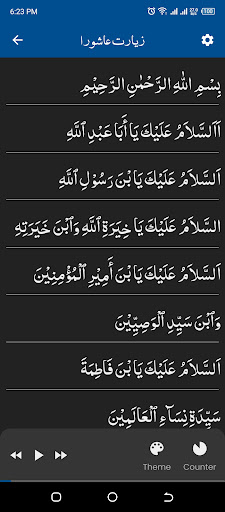 6:23 PM
زیارت عاشورا
بِسْمِ اللهِ الرَّحْمٰنِ الرَّحِيْمِ
اَلسَّلاَمُ عَلَيْكَ يَا أَبَا عَبْدِ ٱللَّهِ
اَلسَّلاَمُ عَلَيْكَ يَا بْنَ رَسُوْلِ ٱللَّهِ
اَلسَّلاَمُ عَلَيْكَ يَا خِيَرَةِ ٱللَّهِ وَٱبْنَ خَيَرَتِهِ
اَلسَّلاَمُ عَلَيْكَ يَا بْنَ أَمِيْرِ ٱلْمُؤْمِنِيْنَ
وَٱبْنَ سَيِّدِ ٱلْوَصِيِّيْنَ
اَلسَّلاَمُ عَلَيْكَ يَا بْنَ فَاطِمَةَ
سَيِّدَةِ نِسَاءِ ٱلْعَالَمِيْنَ
Theme Counter